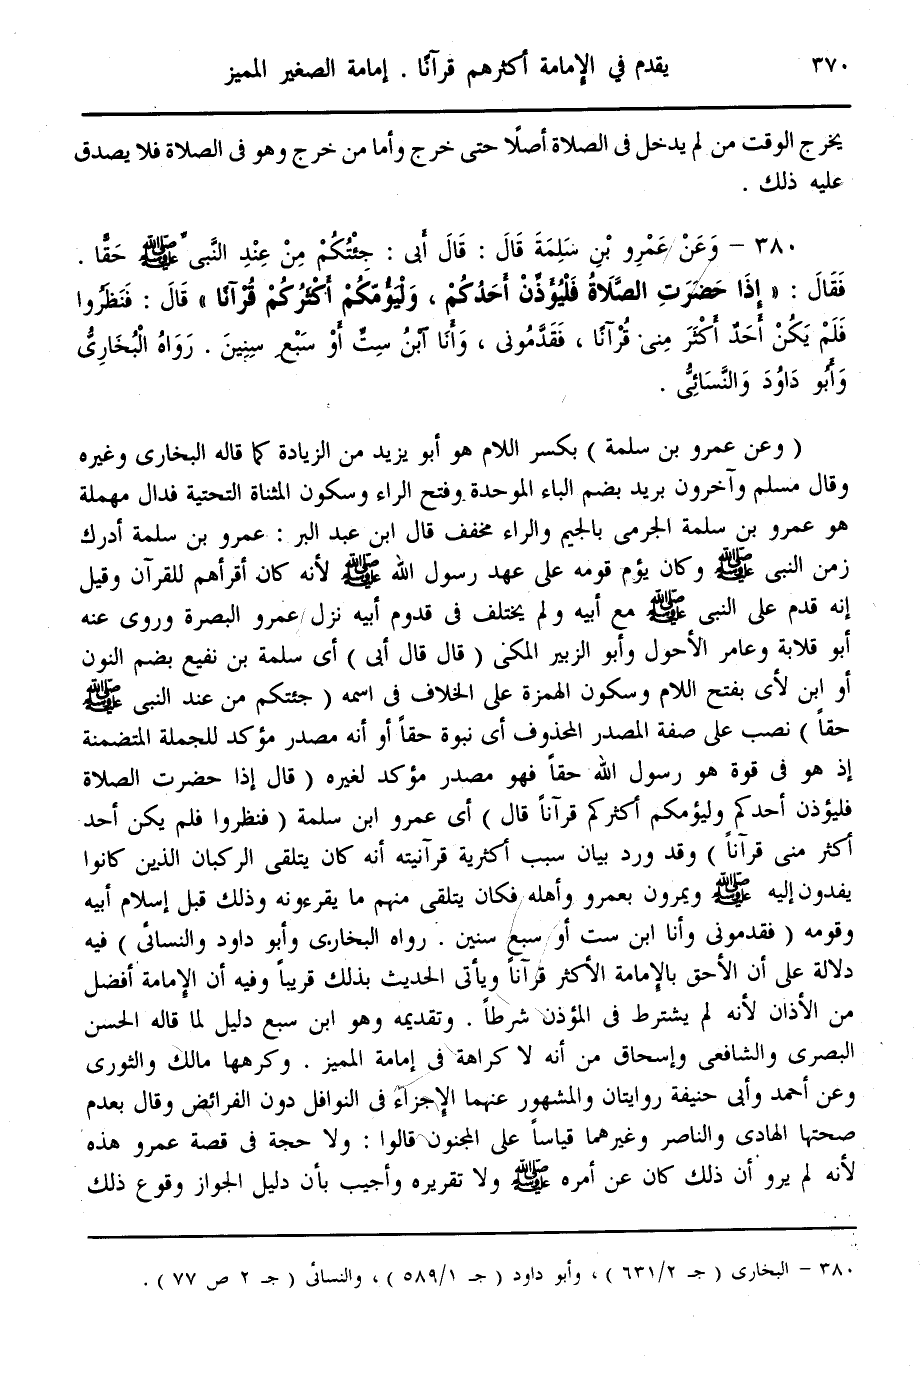 ٣٧٠ يقدم في الإمامة أكثرهم قرآنًا . إمامة الصغير المميز
يخرج الوقت من لم يدخل فى الصلاة أصلًا حتى خرج وأما من خرج وهو فى الصلاة فلا يصدق
عليه ذلك .
٣٨٠ – وَعَنْ عَمْرِو بْنِ سَلِمَةَ قَالَ : قَالَ أَبى : جِئْتُكُمْ مِنْ عِنْدِ النَّبى ﷺ حَقًّا .
فَقَالَ : « إِذَا حَضَرَتِ الصَّلَاةُ فَلْيُؤَذِّنْ أَحَدُكُمْ ، وَلْيَؤُمّكمْ أَكْثَرُكُمْ قُرْآنًا » قَالَ : فَنَظَرُوا
فَلَمْ يَكُنْ أَحَدٌ أَكْثَرَ مِنى قُرْآنًا ، فَقَدَّمُونى ، وَأَنَا آبْنُ سِتٍّ أَوْ سَبْعِ سِنِينَ . رَوَاهُ الْبُخَارِىُّ
وَأَبُو دَاوُدَ وَالنَّسَائِىُّ .
( وعن عمرو بن سلمة ) بكسر اللام هو أبو يزيد من الزيادة كما قاله البخارى وغيره
وقال مسلم وآخرون بريد بضم الباء الموحدة وفتح الراء وسكون المثناة التحتية فدال مهملة
هو عمرو بن سلمة الجرمى بالجيم والراء مخفف قال ابن عبد البر : عمرو بن سلمة أدرك
زمن النبى ﷺ وكان يؤم قومه على عهد رسول الله ﷺ لأنه كان أقرأهم للقرآن وقيل
إنه قدم على النبى ﷺ مع أبيه ولم يختلف فى قدوم أبيه نزل عمرو البصرة وروى عنه
أبو قلابة وعامر الأحول وأبو الزبير المكى ( قال قال أبى ) أى سلمة بن نفيع بضم النون
أو ابن لأى بفتح اللام وسكون الهمزة على الخلاف فى اسمه ( جئتكم من عند النبى ﷺ
حقاً ) نصب على صفة المصدر المحذوف أى نبوة حقاً أو أنه مصدر مؤكد للجملة المتضمنة
إذ هو فى قوة هو رسول الله حقاً فهو مصدر مؤكد لغيره ( قال إذا حضرت الصلاة
فليؤذن أحدكم وليؤمكم أكثركم قرآناً قال ) أى عمرو ابن سلمة ( فنظروا فلم يكن أحد
أكثر منى قرآناً ) وقد ورد بيان سبب أكثرية قرآنيته أنه كان يتلقى الركبان الذين كانوا
يفدون إليه ﷺ ويمرون بعمرو وأهله فكان يتلقى منهم ما يقرءونه وذلك قبل إسلام أبيه
وقومه ( فقدمونى وأنا ابن ست أو سبع سنين . رواه البخارى وأبو داود والنسائى ) فيه
دلالة على أن الأحق بالإمامة الأكثر قرآناً ويأتى الحديث بذلك قريباً وفيه أن الإمامة أفضل
من الأذان لأنه لم يشترط فى المؤذن شرطاً . وتقديمه وهو ابن سبع دليل لما قاله الحسن
البصرى والشافعى وإسحاق من أنه لا كراهة فى إمامة المميز . وكرهها مالك والثورى
وعن أحمد وأبى حنيفة روايتان والمشهور عنهما الإجزاء فى النوافل دون الفرائض وقال بعدم
صحتها الهادى والناصر وغيرهما قياساً على المجنون قالوا : ولا حجة فى قصة عمرو هذه
لأنه لم يرو أن ذلك كان عن أمره ﷺ ولا تقريره وأجيب بأن دليل الجواز وقوع ذلك
٣٨٠ – البخارى ( جـ ٦٣١/٢ ) ، وأبو داود ( جـ ٥٨٩/١ ) ، والنسائى ( جـ ٢ ص ٧٧ ) .